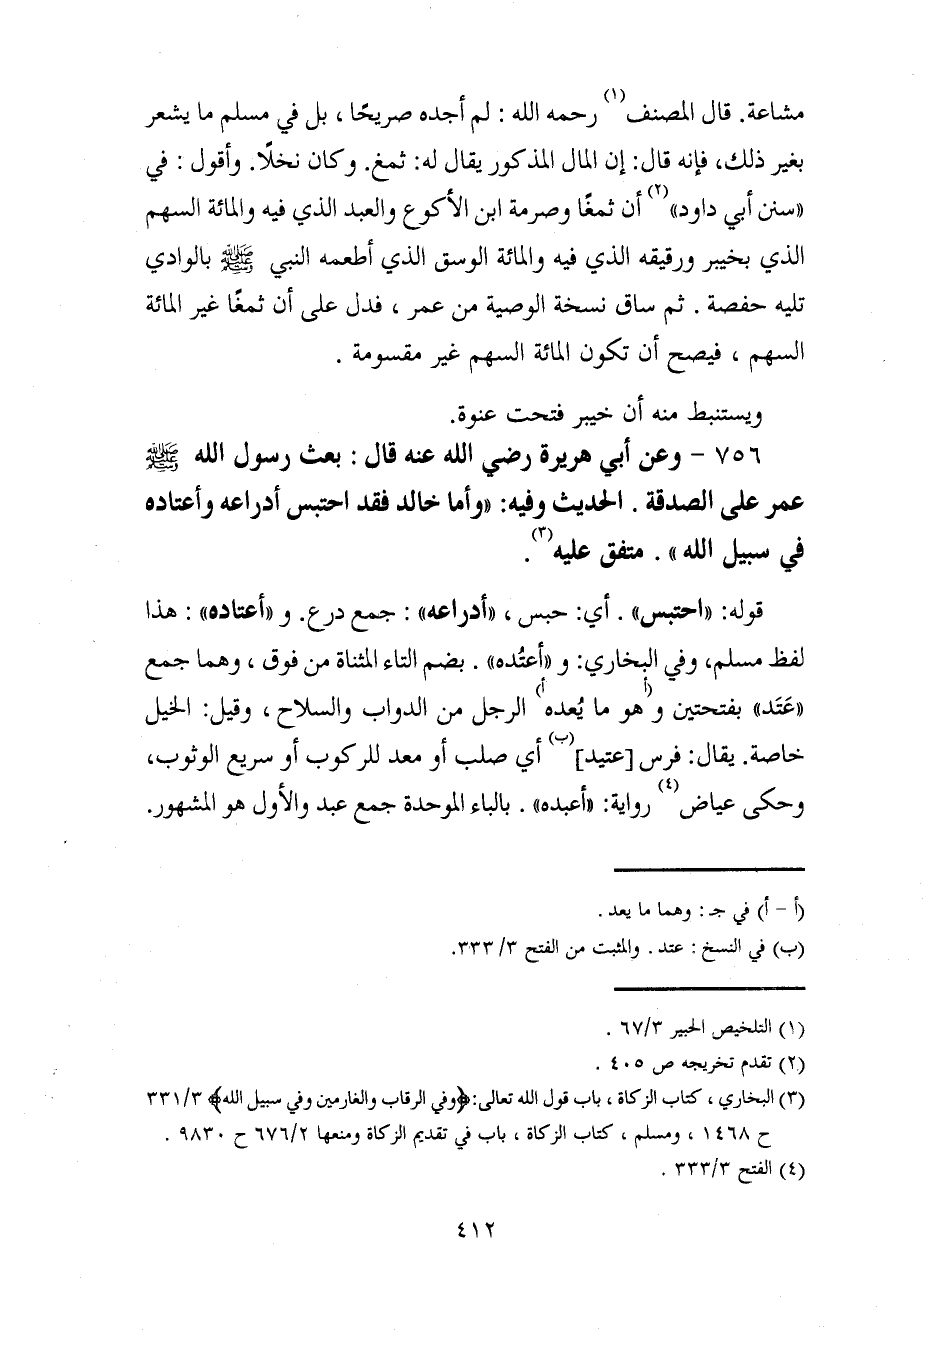 مشاعة. قال المصنف(١) رحمه الله : لم أجده صريحًا ، بل في مسلم ما يشعر
بغير ذلك، فإنه قال: إن المال المذكور يقال له: ثمغ. وكان نخلًا. وأقول : في
«سنن أبي داود»(٢) أن ثمغًا وصرمة ابن الأكوع والعبد الذي فيه والمائة السهم
الذي بخيبر ورقيقه الذي فيه والمائة الوسق الذي أطعمه النبي ﷺ بالوادي
تليه حفصة . ثم ساق نسخة الوصية من عمر ، فدل على أن ثمغًا غير المائة
السهم ، فيصح أن تكون المائة السهم غير مقسومة .
ويستنبط منه أن خيبر فتحت عنوة.
٧٥٦ - وعن أبي هريرة رضي الله عنه قال : بعث رسول الله ﷺ
عمر على الصدقة . الحديث وفيه: «وأما خالد فقد احتبس أدراعه وأعتاده
في سبيل الله» . متفق عليه(٣).
قوله: «احتبس» . أي: حبس ، «أدراعه» : جمع درع. و «أعتاده» : هذا
لفظ مسلم، وفي البخاري: و «أعتُده» . بضم التاء المثناة من فوق ، وهما جمع
«عَتَد» بفتحتين و(أهو ما يُعده أ) الرجل من الدواب والسلاح ، وقيل: الخيل
خاصة. يقال: فرس [عتيد](ب) أي صلب أو معد للركوب أو سريع الوثوب،
وحكى عياض(٤) رواية: «أعبده» . بالباء الموحدة جمع عبد والأول هو المشهور.
(أ - أ) في جـ : وهما ما يعد .
(ب) في النسخ : عتد . والمثبت من الفتح ٣/ ٣٣٣.
(١) التلخيص الحبير ٣/ ٦٧ .
(٢) تقدم تخريجه ص ٤٠٥ .
(٣) البخاري ، كتاب الزكاة ، باب قول الله تعالى: ﴿وفي الرقاب والغارمين وفي سبيل الله﴾ ٣/ ٣٣١
ح ١٤٦٨ ، ومسلم ، كتاب الزكاة ، باب في تقديم الزكاة ومنعها ٢/ ٦٧٦ ح ٩٨٣٠ .
(٤) الفتح ٣/ ٣٣٣ .
٤١٢